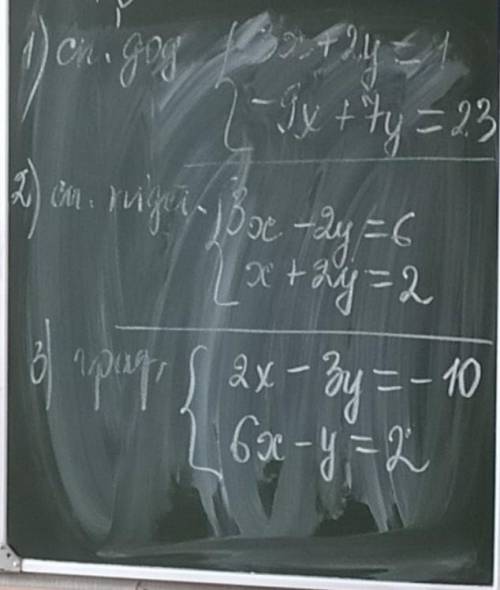 1) сп. дод { 3x + 2y = 1
-9x + 7y = 23
2) сп. { 3x - 2y = 6
x + 2y = 2
3) { 2x - 3y = -10
6x - y = 2